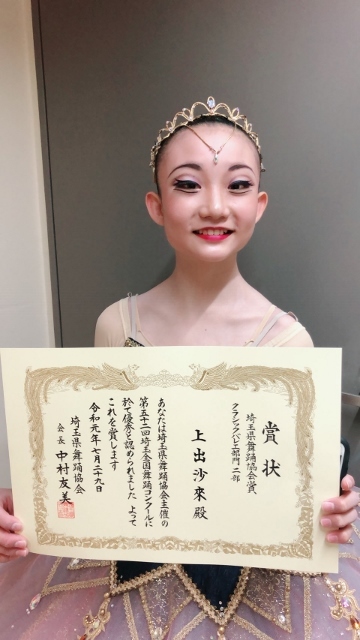 賞状
埼玉県舞踊協会賞
クラシックバレエ部門二部
上出沙來殿
あなたは埼玉県舞踊協会主催の
第五十二回埼玉全国舞踊コンクールに
於て優秀と認められました よって
これを賞します
令和元年七月二十九日
埼玉県舞踊協会
会長 中村友美